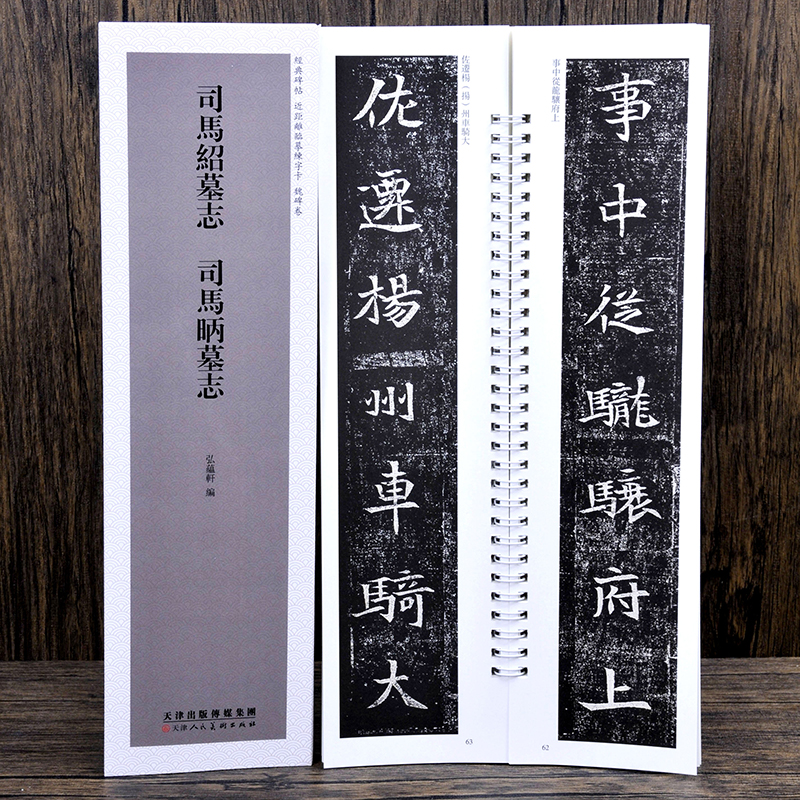 經典碑帖 近距離臨摹練字卡 魏碑卷
司馬紹墓志 司馬昞墓志
弘蘊軒 編
天津出版傳媒集團
天津人民美術出版社
事中從龍驤府上
事中從龍驤府上
62
佐遷楊（揚）州車騎大
佐遷楊州車騎大
63